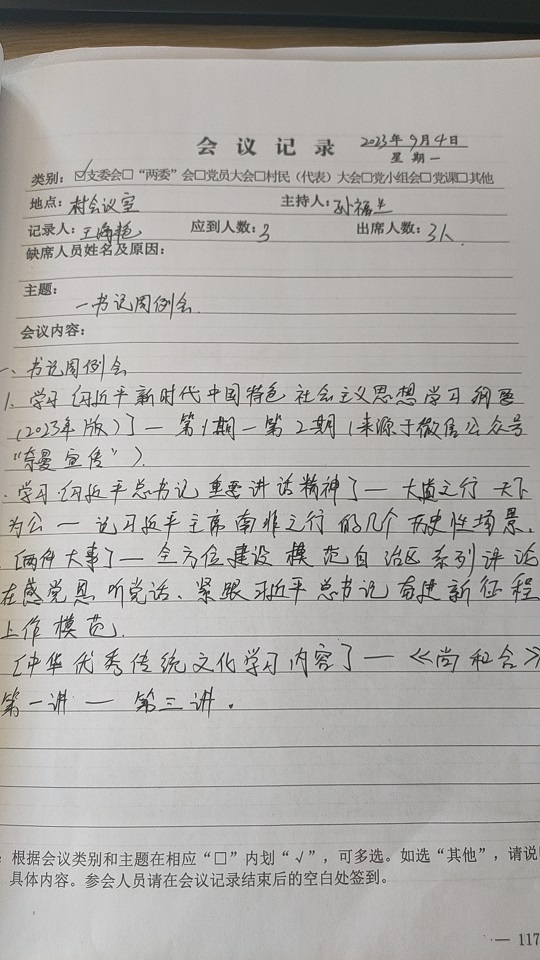 会议记录 2023年9月4日
星期一
类别：☑支委会□“两委”会□党员大会□村民（代表）大会□党小组会□党课□其他
地点：村会议室 主持人：孙福
记录人：王海艳 应到人数：3 出席人数：3人
缺席人员姓名及原因：
主题：
一书记周例会
会议内容：
一、书记周例会
1、学习《习近平新时代中国特色社会主义思想学习纲要
（2023年版）》一 第1期一第2期（来源于微信公众号
“奈曼宣传”）.
学习《习近平总书记重要讲话精神》一 大道之行 天下
为公 一 记习近平主席南非之行的几个历史性场景.
【两件大事】一 全方位建设模范自治区系列评论
在感党恩、听党话、紧跟习近平总书记奋进新征程
上作模范.
【中华优秀传统文化学习内容】一《尚和合》
第一讲 — 第三讲.
：根据会议类别和主题在相应“□”内划“√”，可多选。如选“其他”，请说
具体内容。参会人员请在会议记录结束后的空白处签到。
— 117